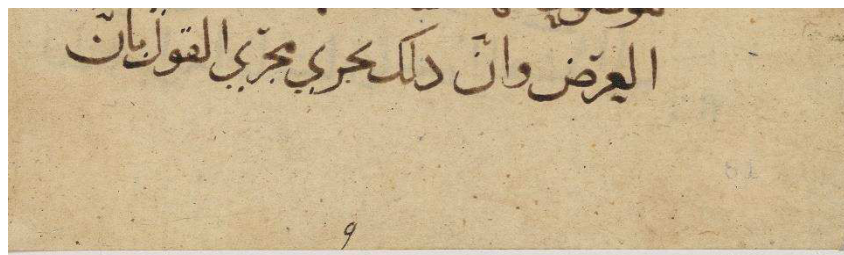 العرض وانّ ذلك يجري مجرى القول بانّ
9